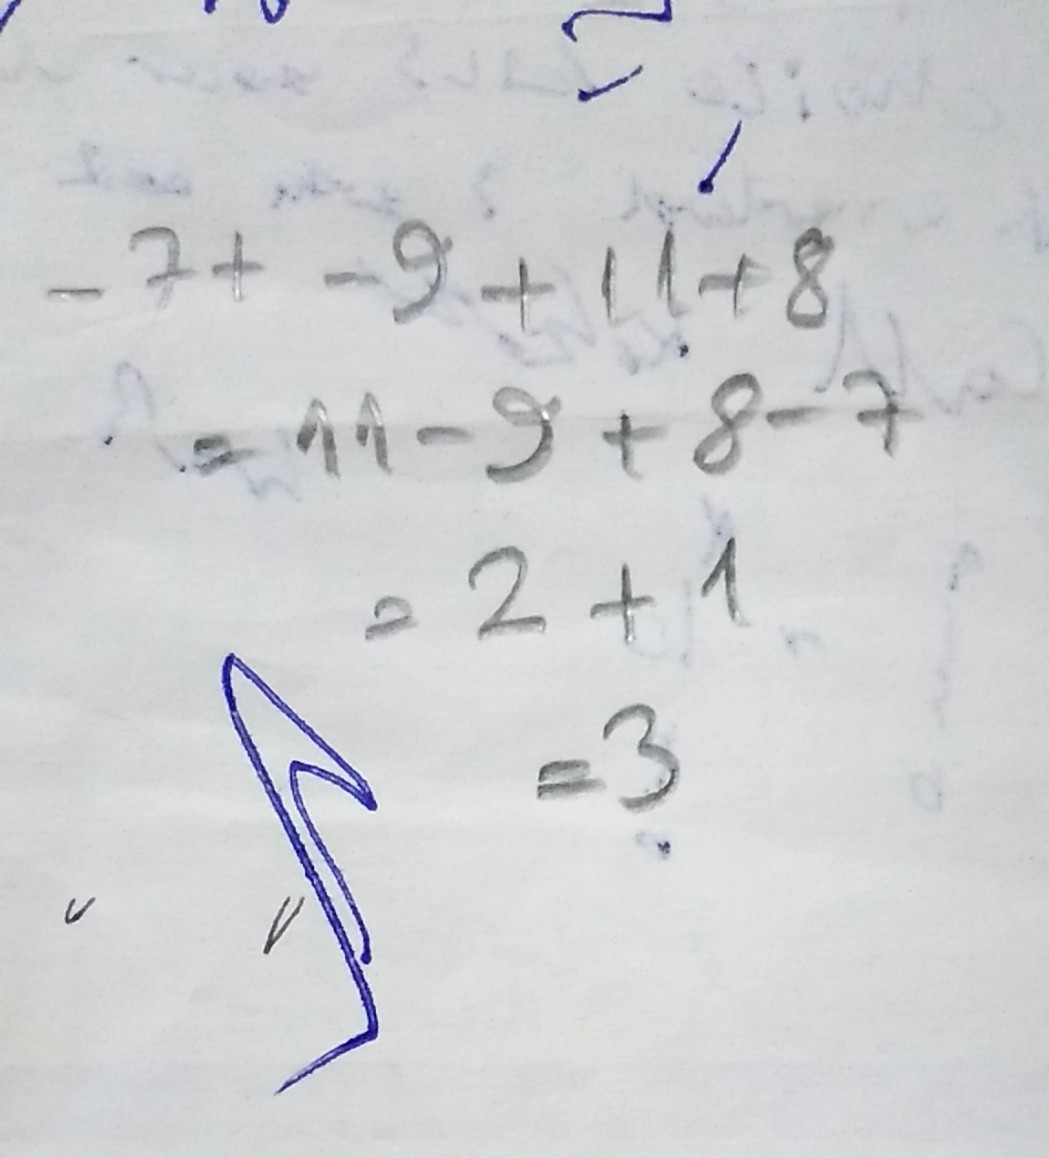 -7+ -9 +11+8
= 11-9 + 8-7
= 2 + 1
=3